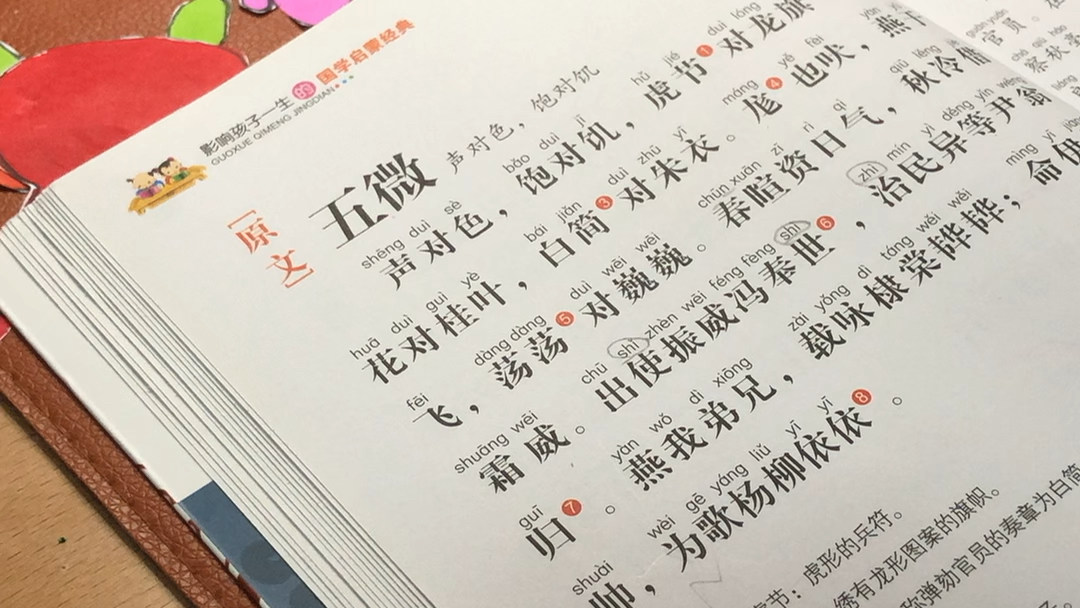 影响孩子一生的国学启蒙经典
GUOXUE QIMENG JINGDIAN
[原文]
五微
声对色,饱对饥
shēng duì sè bǎo duì jī hǔ jié duì lóng
声对色,饱对饥,虎节①对龙旗
huā duì guì yè bái jiǎn duì zhū yī máng yě fèi yàn
花对桂叶,白简③对朱衣。尨④也吠,燕于
fēi dàng dàng duì wēi wēi chūn xuān zī rì qì qiū lěng
飞,荡荡⑤对巍巍。春暄资日气,秋冷借
shuāng wēi chū shǐ zhèn wēi féng fèng shì zhì mín yì děng yǐn wēng
霜威。出使振威冯奉世⑥,治民异等尹翁
guī yàn wǒ dì xiōng zài yǒng dì táng wěi wěi mìng
归⑦。燕我弟兄,载咏棣棠韡韡;命伊
shuài wèi gē yáng liǔ yī yī
帅,为歌杨柳依依⑧。
节:虎形的兵符。
绣有龙形图案的旗帜。
称弹劾官员的奏章为白简
guān yuán
官员。
chá qiū háo
察秋毫